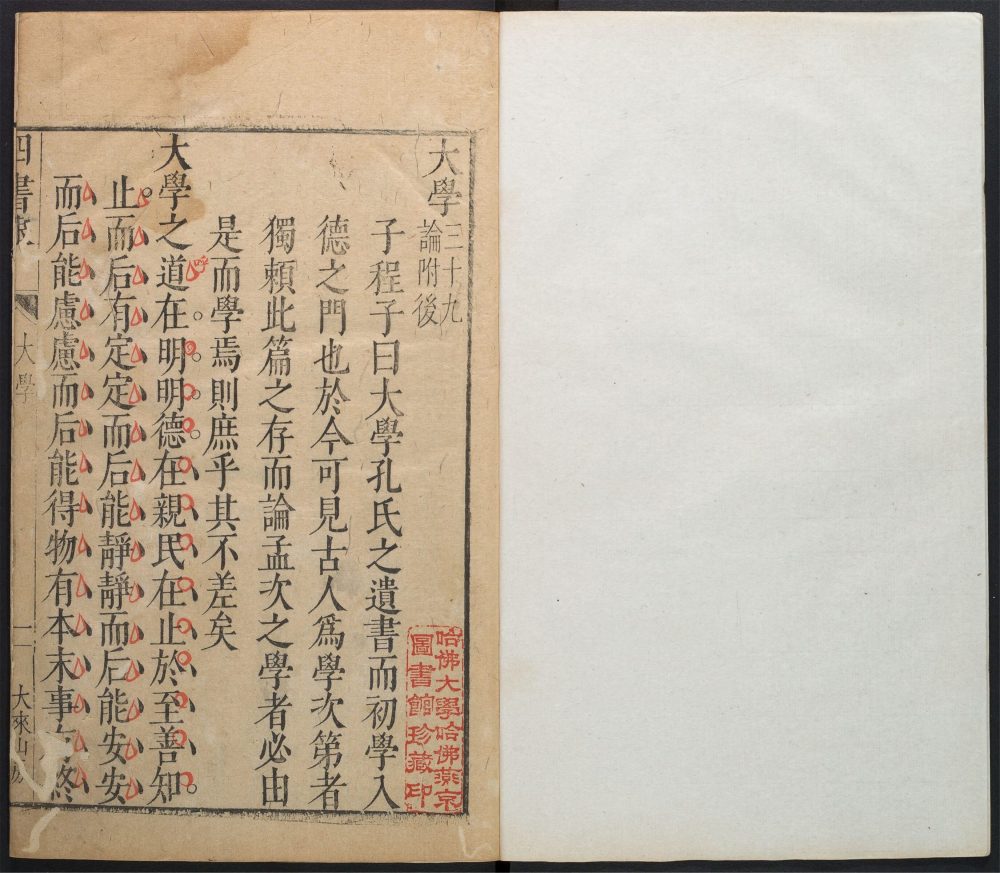 大學三十九
論附後
子程子曰大學孔氏之遺書而初學入
德之門也於今可見古人爲學次第者
獨頼此篇之存而論孟次之學者必由
是而學焉則庶乎其不差矣
大學之道在明明德在親民在止於至善知
止而后有定定而后能靜靜而后能安安
而后能慮慮而后能得物有本末事終
四書
大學
一
大來山
哈佛大學哈佛燕京
圖書館珍藏印